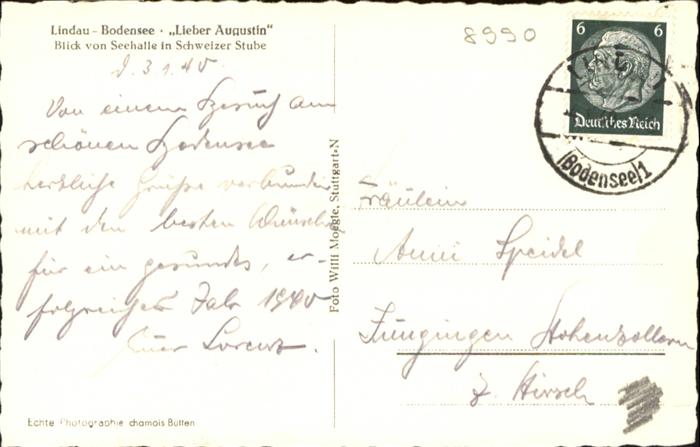 Lindau - Bodensee · „Lieber Augustin"
Blick von Seehalle in Schweizer Stube
d. 3.1.40
Von einem Besuch am
schönen Bodensee
herzliche Grüße verbunden
mit den besten Wünschen
für ein gesundes, er-
folgreiches Jahr 1940
Euer Lorenz.
Echte Photographie chamois Bütten
Foto Willi Moegle, Stuttgart-N
8990
6 6
Deutsches Reich
LINDAU
(Bodensee) 1
Fräulein
Anni Speidel
Jungingen Hohenzollern
z. Hirsch